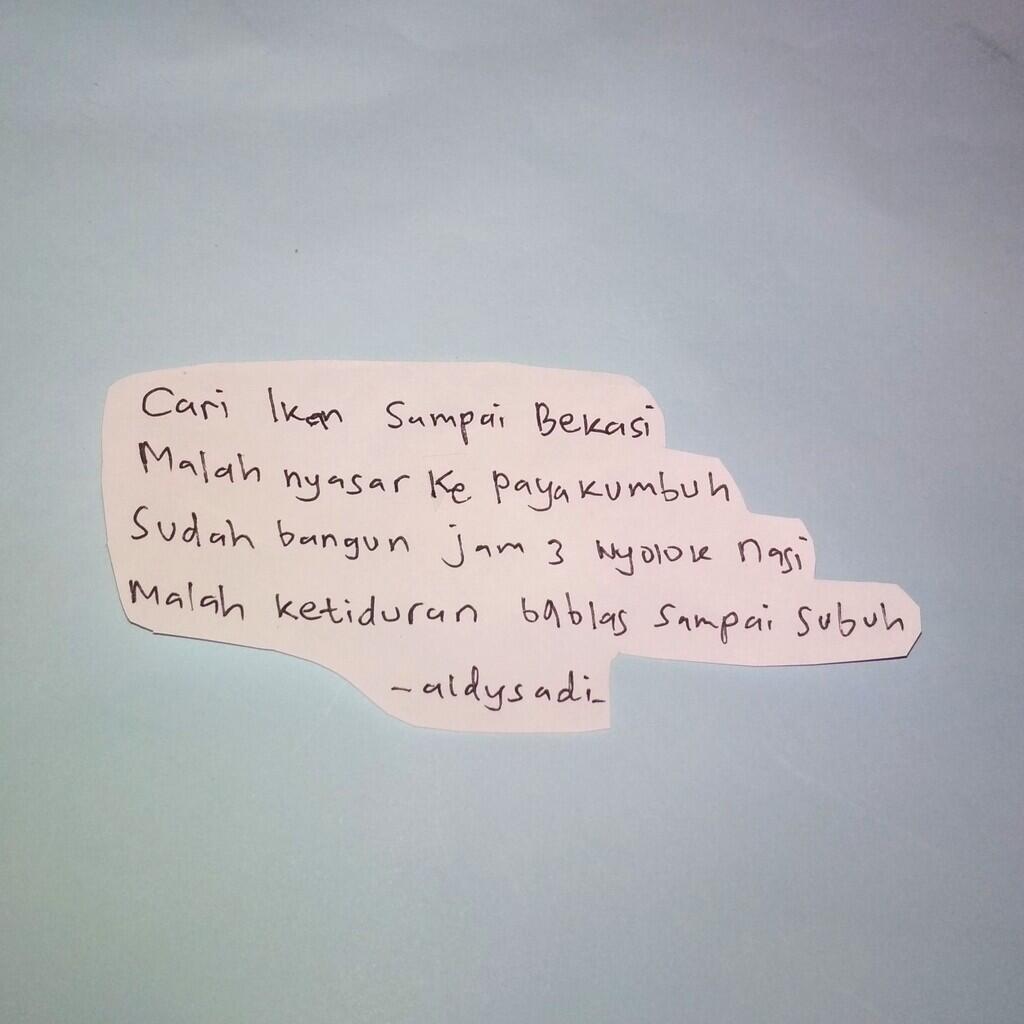 Cari Ikan Sampai Bekasi
Malah nyasar ke payakumbuh
Sudah bangun jam 3 nyolok nasi
Malah ketiduran bablas sampai subuh
-aldysadi-